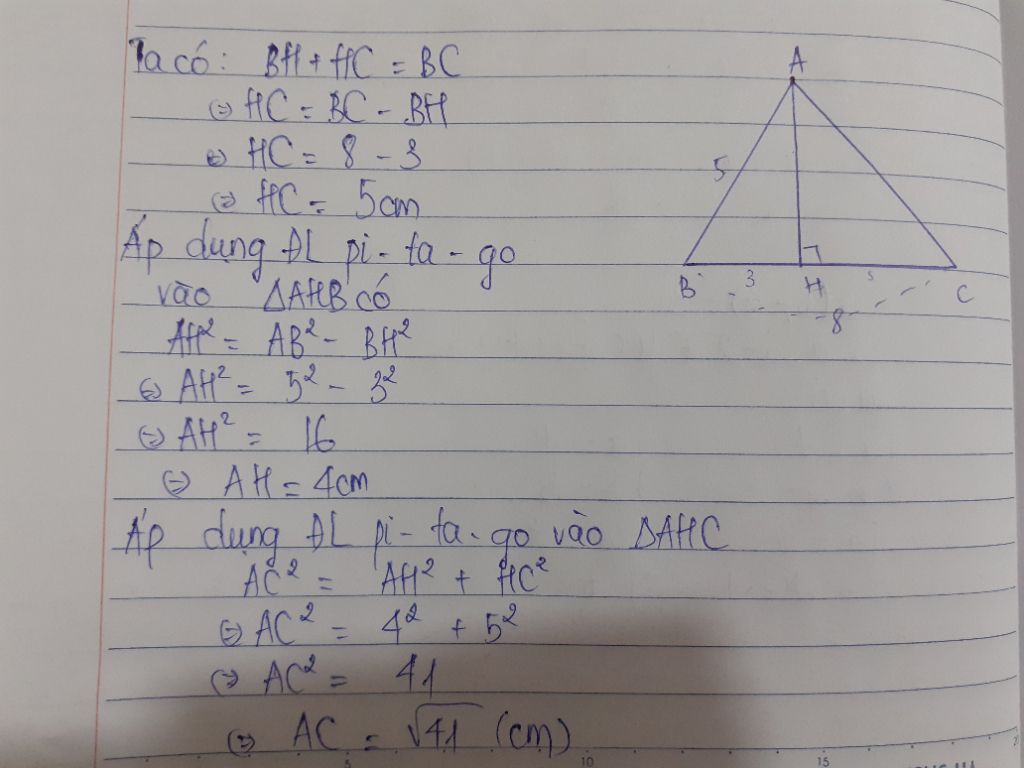 Ta có: BH + HC = BC
⇔ HC = BC - BH
⇔ HC = 8 - 3
⇔ HC = 5cm
Áp dụng ĐL pi-ta-go
vào ΔAHB có
AH² = AB² - BH²
⇔ AH² = 5² - 3²
⇔ AH² = 16
⇔ AH = 4cm
Áp dụng ĐL pi-ta-go vào ΔAHC
AC² = AH² + HC²
⇔ AC² = 4² + 5²
⇔ AC² = 41
⇔ AC = √41 (cm)
A
5
B 3 H 5 C
8
5 10 15